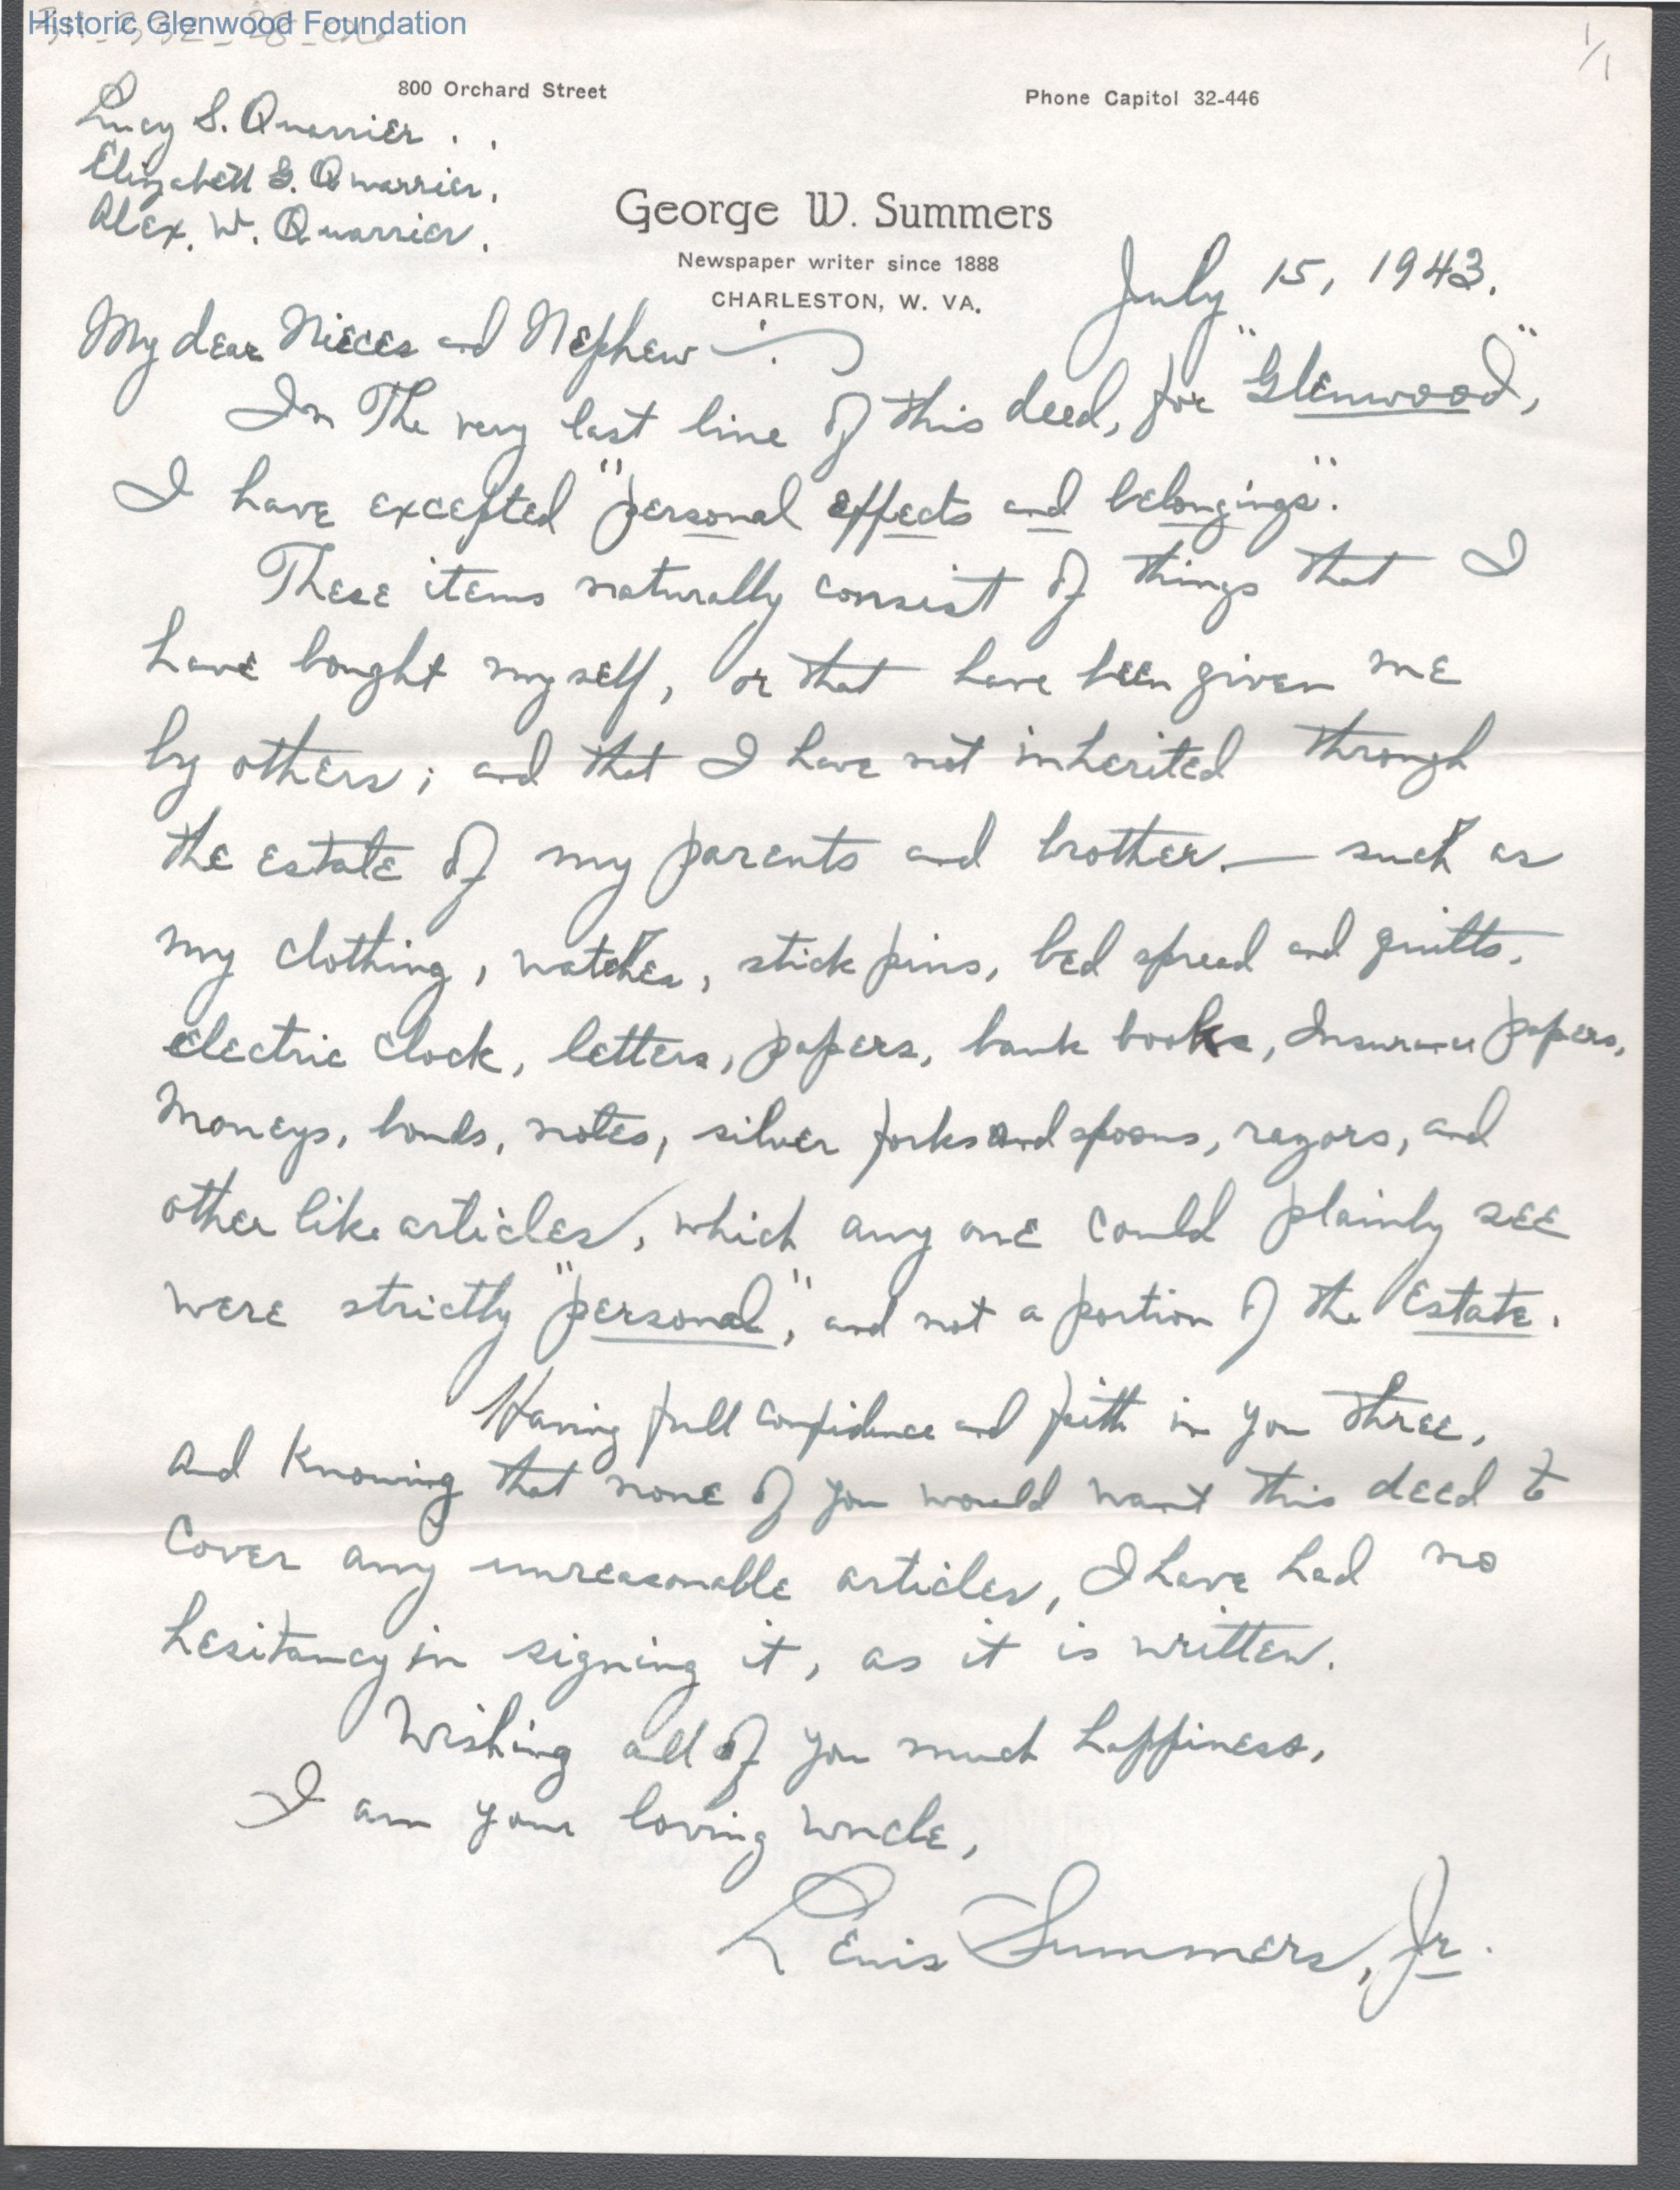 Historic Glenwood Foundation
1/1
800 Orchard Street
Phone Capitol 32-446
Lucy S. Quarrier . ,
Elizabeth S. Quarrier,
Alex. W. Quarrier.
George W. Summers
Newspaper writer since 1888
CHARLESTON, W. VA.
July 15, 1943.
My dear Nieces and Nephew :
In The very last line of this deed, for "Glenwood",
I have excepted "personal effects and belongings".
These items naturally consist of things that I
have bought myself, or that have been given me
by others; and that I have not inherited through
the estate of my parents and brother. — such as
my clothing, watches, stick pins, bed spread and quilts,
electric clock, letters, papers, bank books, Insurance papers,
Moneys, bonds, notes, silver forks and spoons, razors, and
other like articles, which any one could plainly see
were strictly "personal", and not a portion of the Estate.
Having full confidence and faith in you three,
and Knowing that none of you would want this deed to
Cover any unreasonable articles, I have had no
hesitancy in signing it, as it is written.
Wishing all of you much happiness,
I am your loving Uncle,
Lewis Summers, Jr.